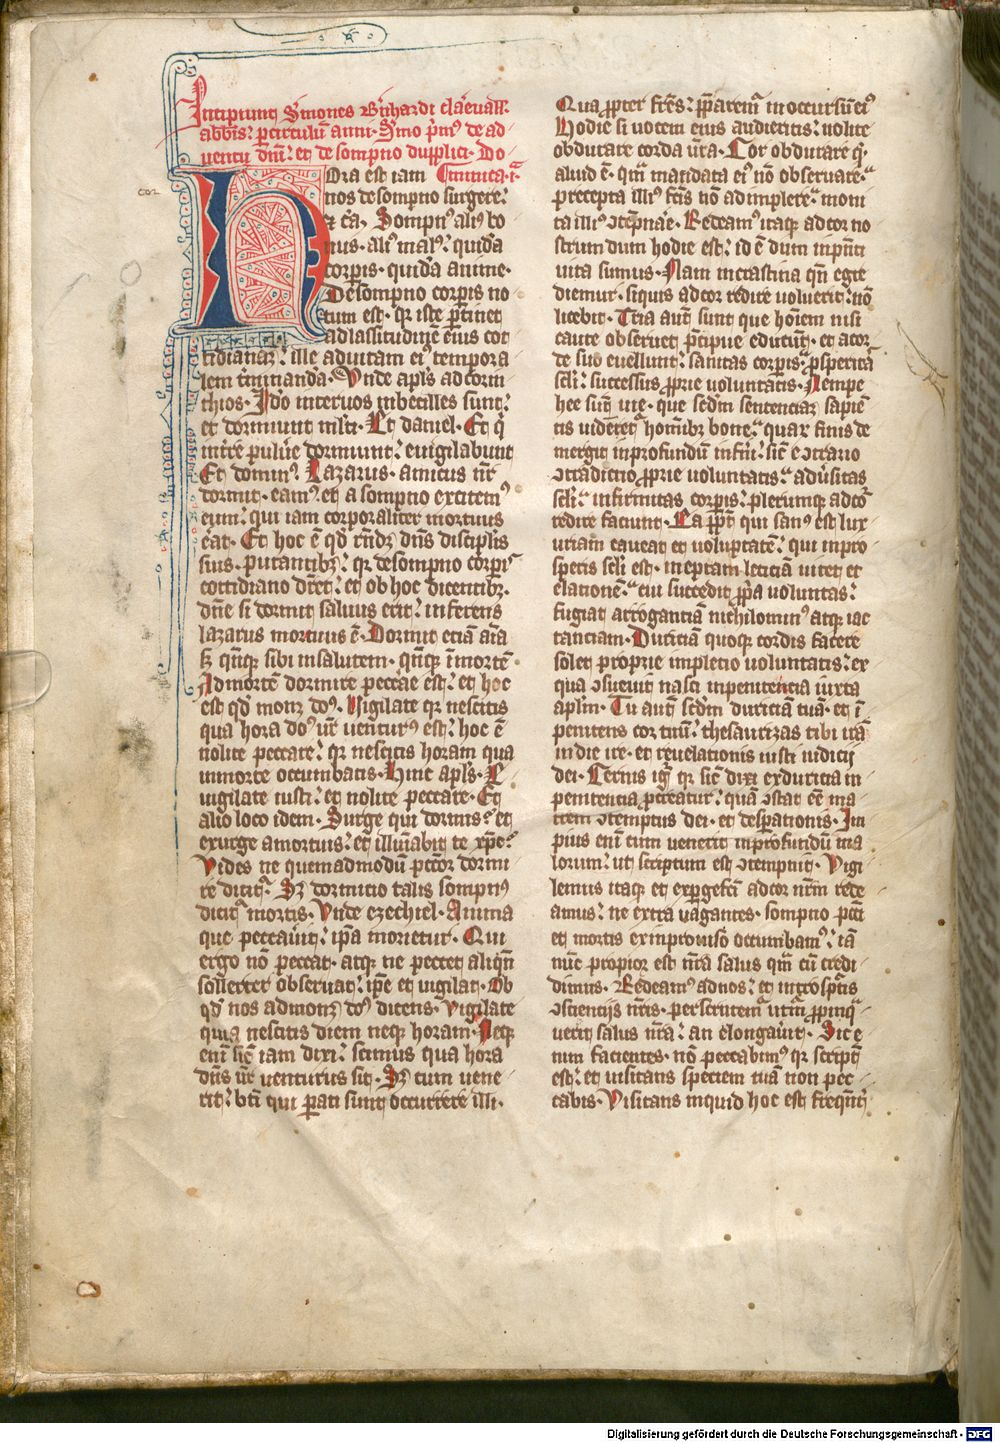 Incipiunt S̄mones B̄nhardi clareuall̄
abb̄is p̄ circulū anni · S̄mo p̄m9 de ad-
uentu dn̄i et de sompno dupplici · Do-
Hora est iam c̄minica · i̊
nos de sompno surgere
& cā, Sompn9 ali9 bo
nus · ali9 mal9 quidā
corpis · quidā anime ·
De sompno corpis no
tum est · qr iste ꝑtinet
ad lassitudinē
cor
tidianā ille ad uitam ei9 tempora
lem t̄minandā · Vnde apl̄s ad corin
thios · Ido inter uos inbecilles sunt
et dormiunt ml̄ti · Et daniel · Et q̄
in t̄re puluē dormiunt euigilabunt
Et domin9 Lazarus · amicus nr̄
dormit · eam9 et a sompno excitem9
eum qui iam corporaliter mortuus
erat · Et hoc ē qd̄ dn̄s discipl̄is
suis · putantibꝫ qr de sompno corpis
cottidiano dr̄et et ob hoc dicentibꝫ ·
dn̄e si dormit saluus erit inferens
lazarus mortuus ē · Dormit eciā aīa
sꝫ qn̄qꝫ sibi in salutem · qn̄qꝫ ī mortē ·
Ad mortē dormire peccare est et hoc
est qd̄ monꝫ do9 · Vigilate qr nescitis
qua hora do9 ur̄ uentur9 est hoc ē
nolite peccare qr nescitis horam qua
in morte occumbatis · Hinc apl̄s · E
uigilate iusti et nolite peccare · Et
alio loco idem · Surge qui dormis et
exurge a mortuis et illuīabit te xp̄c
Vides ne quemadmodū pctōr dormi
re dicit · Sꝫ dormicio talis sompn9
dicit mortis · Vnde ezechiel · Anima
que peccauit ip̄a morietur · Qui
ergo nō peccat · atqꝫ ne peccet aliqn̄
sollerter obseruat ip̄e et uigilat · Ob
qd̄ nos admonꝫ do9 dicens · Vigilate
quia nescitis diem neqꝫ horam · Neqꝫ
eni sic̄ iam dixi scimus qua hora
dn̄s ur̄ uenturus sit · Sꝫ cum uene
rit bt̄i qui parati sunt occurrere illi ·
Qua ꝓpter fr̄es ꝓparemur in occursū ei9
Hodie si uocem eius audieritis nolite
obdurare corda ur̄a · Cor obdurare qr
aliud ē · qm̄ mandata ei9 nō obseruare
precepta illi9 fr̄es nō adimplere moni
ta illi9 ꝯtēpnāe · Redeam9 itaqꝫ ad cor no
strum dum hodie est id ē dum in pn̄ti
uita sumus · Nam in crastina qn̄ egre
diemur · siquis ad cor redire uoluerit nō
licebit · Tria aut̄ sunt que hoīem nisi
caute obseruet p̄cipue educunt · et a cor
de suo euellunt sanitas corpis ꝓsperitas
scl̄i successus ꝓprie uoluntatis · Nempe
hee sunt uie · que sedm̄ sentenciam sapiē
tis uidentur hom̄ibꝫ bone quarꝫ finis de
mergit in profundū infn̄i sic̄ e ꝯtrario
ꝯtradictio ꝓprie uoluntatis adūsitas
scl̄i infirmitas corpis plerumqꝫ ad cor
redire faciunt · Ea ꝓpt̄ qui san9 est lux
uriam caueat et uoluptatē qui in pro
speris scl̄i est · ineptam leticiā uitet et
elationē cui succedit ꝓpa uoluntas
fugiat arrogantiā nichilomin9 atqꝫ iac
tanciam · Duriciā quoqꝫ cordis facere
solet proprie impletio uoluntatis ex
qua ꝯsueuit nasci inpenitencia iuxta
aplm̄ · Tu aut̄ sedm̄ duriciā tuā · et ī
penitens cor tuū thesaurizas tibi irā
in die ire · et reuelationis iusti iudicij
dei · Cernis igr̄ qr sic̄ dixi ex duricia in
penitencia ꝓcreatur quā ꝯstat eē ma
trem ꝯtemptus dei · et desperationis · Im
pius enī cum uenerit in profundū ma
lorum ut scriptum est ꝯtempnit · Vigi
lemus itaqꝫ et expgefcī ad cor nr̄m rede
amus ne extra uagantes · sompno pcc̄i
et mortis ex improuiso occumbam9 iā
nūc propior est nr̄a salus qm̄ cū credi
dimus · Redeam9 ad nos et introsp̄tis
ꝯscientijs nr̄is · perscrutem̄ utrm̄ ꝓpinq̄
uerit salus nr̄a an elongauit · Sic e
nim facientes · nō peccabim9 qr scriptū
est et uisitans speciem tuā non pec
cabis · Visitans inquid hoc est freqn̄t
cor
Digitalisierung gefördert durch die Deutsche Forschungsgemeinschaft - DFG